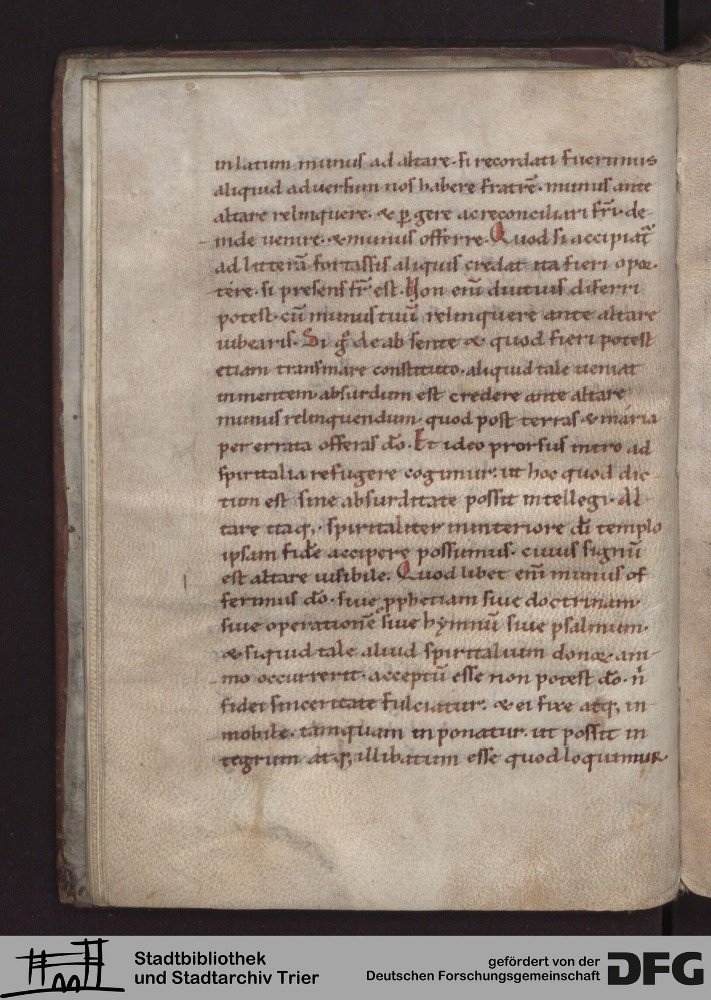 inlatum munus ad altare· si recordati fuerimus
aliquid aduersum nos habere fratrē· munus ante
altare relinquere· & ꝑgere acreconciliari fr̄i· de-
inde uenire· & munus offerre· Quod si accipiat̄
ad litterā fortassis aliquis credat ita fieri opor-
tere· si presens fr̄ est· Non enī diutius differri
potest· cū munus tuū relinquere ante altare
iubearis· Si g̊ de absente & quod fieri potest
etiam transmare constituto· aliquid tale ueniat
inmentem· absurdum est credere ante altare
munus relinquendum· quod post terras & maria
pererrata offeras dō· Et ideo prorsus intro ad
spiritalia refugere cogimur· ut hoc quod dic-
tum est sine absurditate possit intellegi· Al-
tare itaq; spiritaliter ininteriore dī templo
ipsam fidē accipere possumus· cuius signū
est altare uisibile. Quod libet enī munus of
ferimus dō· siue ꝓphetiam siue doctrinam·
siue operationē siue hymnū siue psalmum·
& siquid tale aliud spiritalium donor̄ ani-
mo occurrerit· acceptū esse non potest dō· n̄
fidei sinceritate fulciatur· & ei fixe atq; in-
mobile· tamquam inponatur· ut possit in
tegrum atq; illibatum esse quod loquimur
Stadtbibliothek
und Stadtarchiv Trier
gefördert von der
Deutschen Forschungsgemeinschaft
DFG